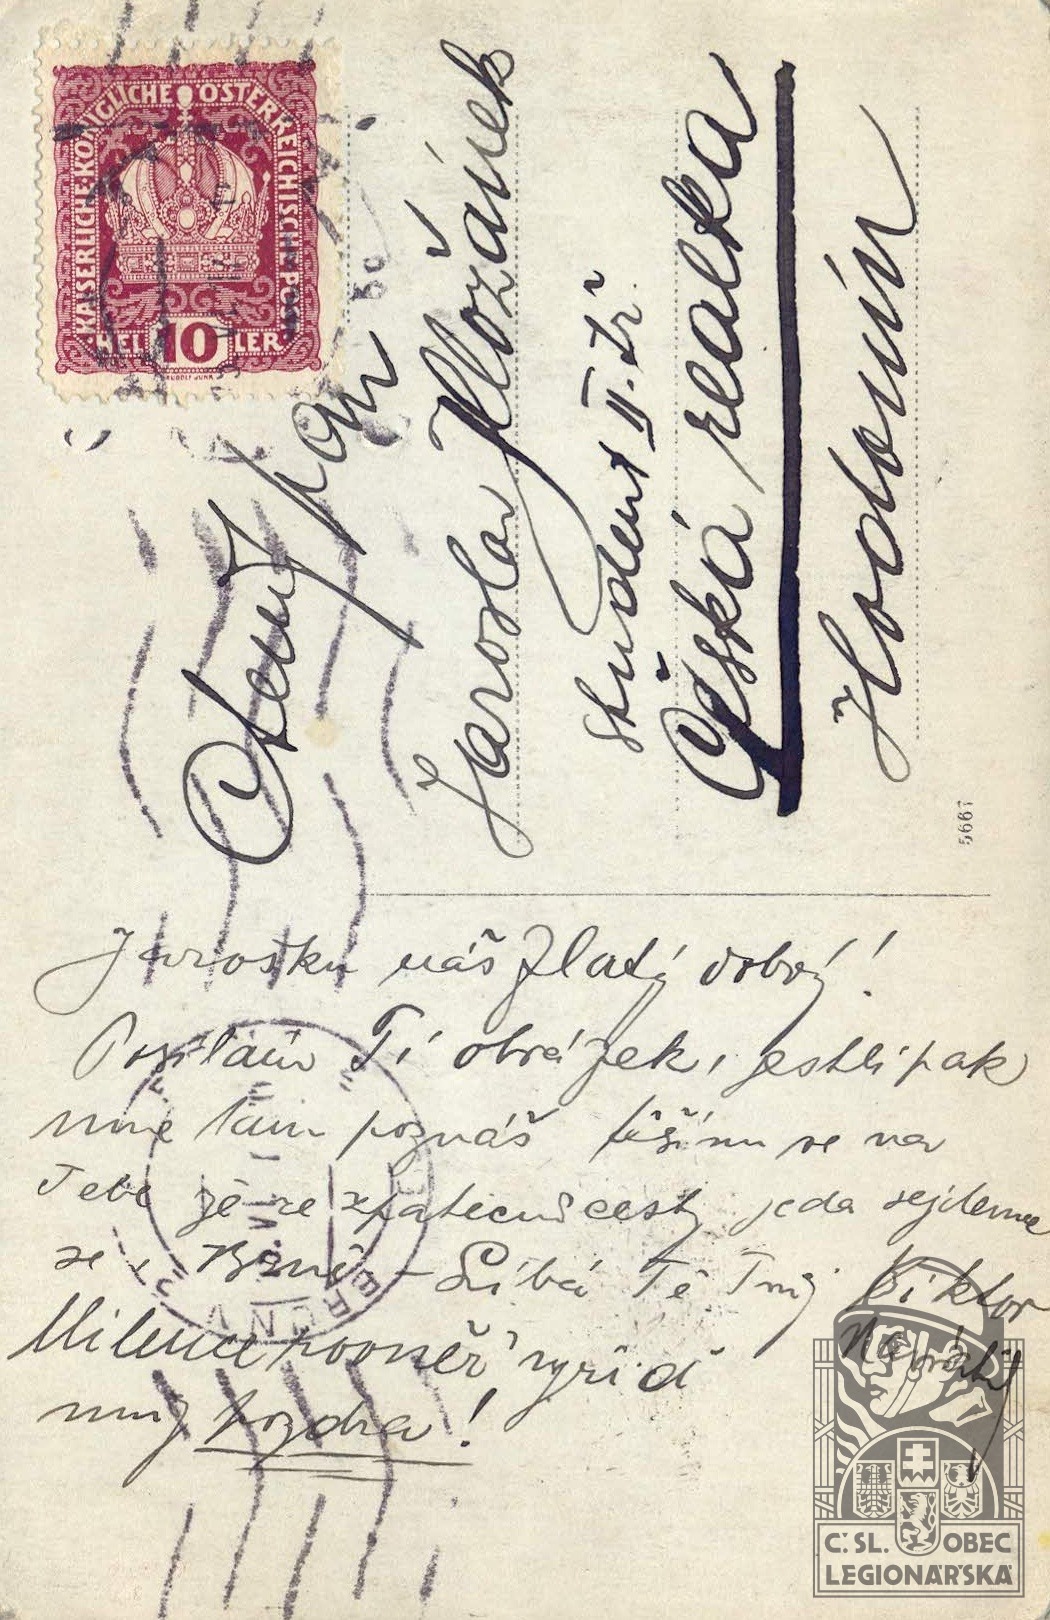 KAISERLICHE·KÖNIGLICHE ÖSTERREICHISCHE POST
10
HELLER
Ctený pan
Jaroslav Hložánek
student II. tř.
Česká realka
Hodonín
5667
Jarošku náš zlatý dobrý!
Posílám Ti obrázek, jestli pak
mne tam poznáš těším se na
Tebe že ze zpateční cesty sejdeme
se v Brně – Líbá Tě Tvůj Viktor
Navrátil
Milence rovněž vyřiď
můj pozdrav!
Č.SL. OBEC
LEGIONÁŘSKÁ